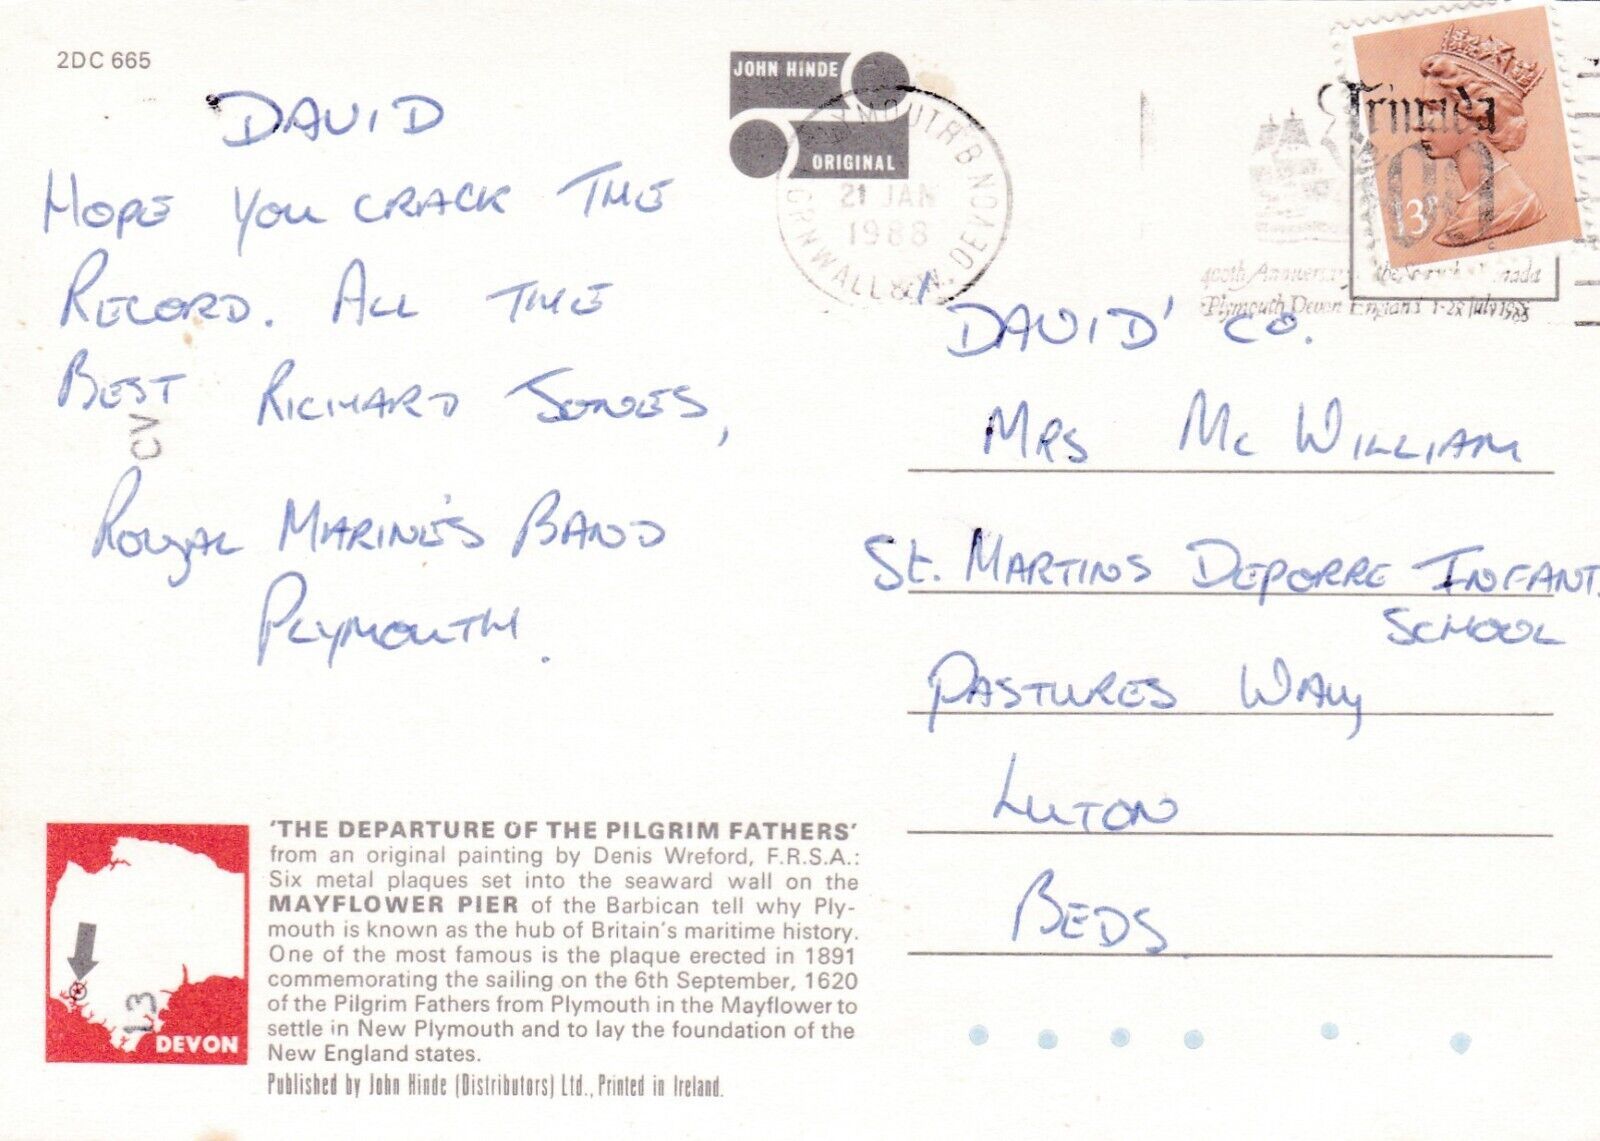 2DC 665
DAVID
HOPE YOU CRACK THE
RECORD. ALL THE
BEST RICHARD JONES,
ROYAL MARINE'S BAND
PLYMOUTH.
CV
JOHN HINDE
ORIGINAL
PLYMOUTH B NON
21 JAN
1988
CRNWALL & W. DEVON
Armada
400
13P
400th Anniversary of the Spanish Armada
Plymouth Devon England 1-28 July 1988
'DAVID' CO.
MRS MC WILLIAM
St. MARTINS DEPORRE INFANT
SCHOOL
PASTURES WAY
LUTON
BEDS.
'THE DEPARTURE OF THE PILGRIM FATHERS'
from an original painting by Denis Wreford, F.R.S.A.:
Six metal plaques set into the seaward wall on the
MAYFLOWER PIER of the Barbican tell why Ply-
mouth is known as the hub of Britain's maritime history.
One of the most famous is the plaque erected in 1891
commemorating the sailing on the 6th September, 1620
of the Pilgrim Fathers from Plymouth in the Mayflower to
settle in New Plymouth and to lay the foundation of the
New England states.
Published by John Hinde (Distributors) Ltd., Printed in Ireland.
L3
DEVON